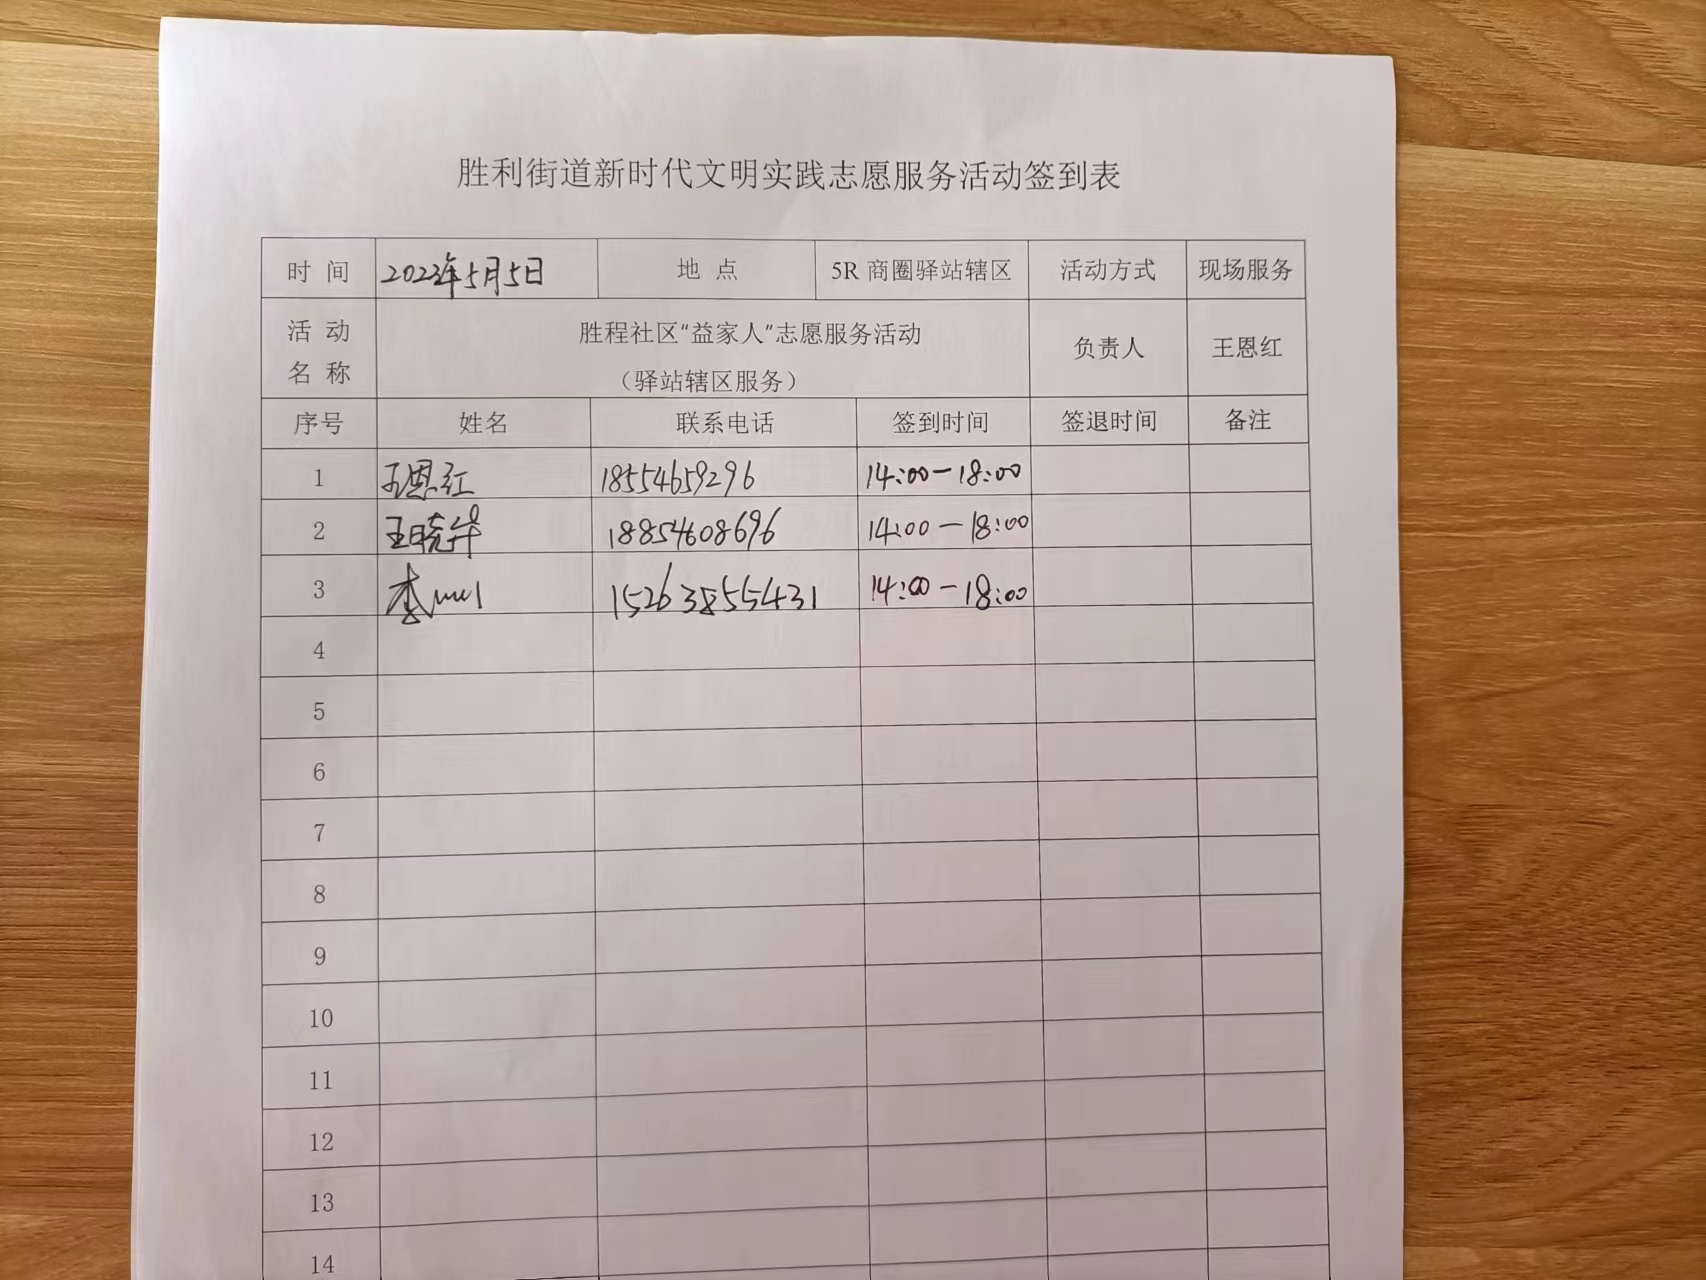 胜利街道新时代文明实践志愿服务活动签到表
时 间 2022年5月5日 地 点 5R 商圈驿站辖区 活动方式 现场服务
活 动 名 称 胜程社区“益家人”志愿服务活动 负责人 王恩红
（驿站辖区服务）
序号 姓名 联系电话 签到时间 签退时间 备注
1 王恩红 18554659296 14:00-18:00
2 王晓华 18854608696 14:00-18:00
3 李 15263855431 14:00-18:00
4
5
6
7
8
9
10
11
12
13
14